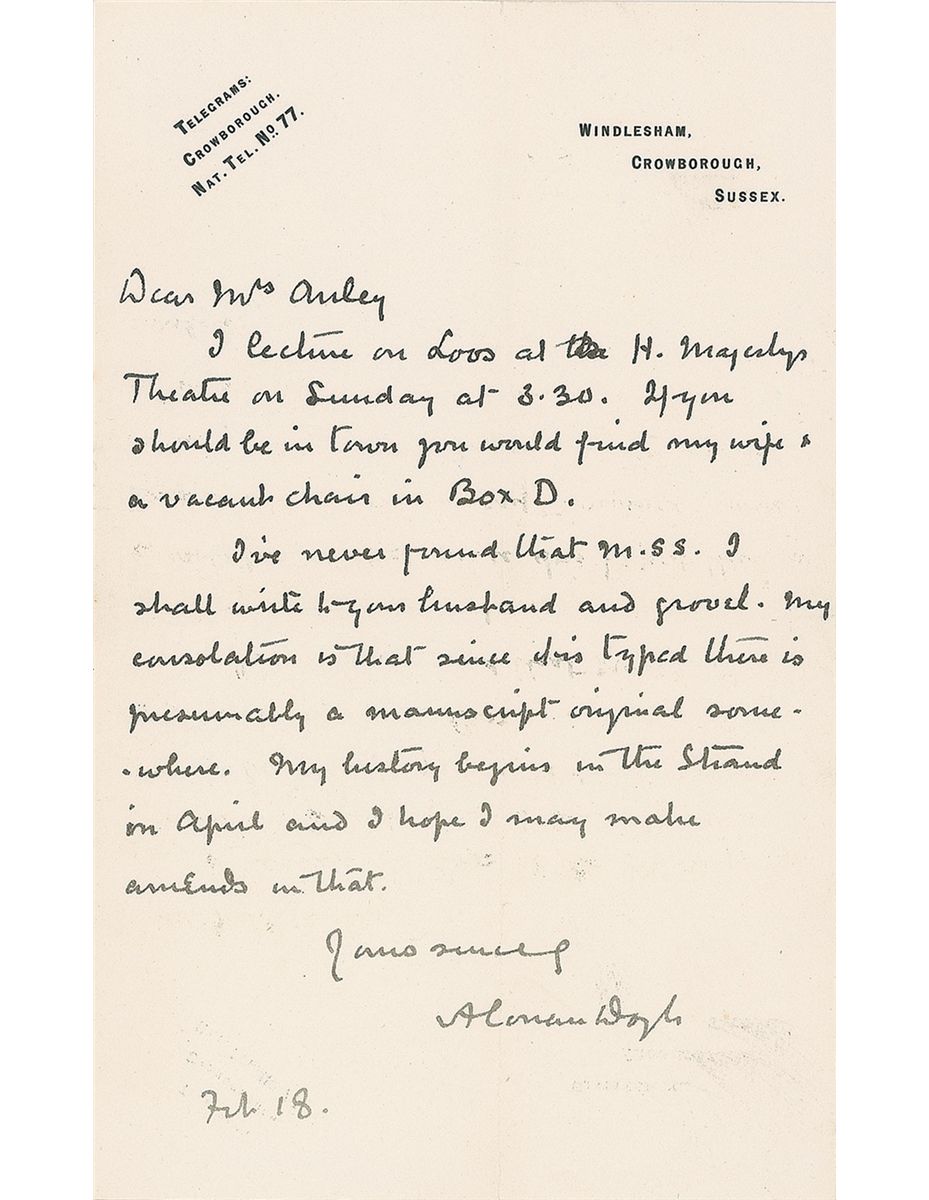 TELEGRAMS:
CROWBOROUGH.
NAT. TEL. No. 77.
WINDLESHAM,
CROWBOROUGH,
SUSSEX.
Dear Mrs Anley
I lecture on Loos at the H. Majestys
Theatre on Sunday at 3.30. If you
should be in town you would find my wife &
a vacant chair in Box D.
I've never found that M.SS. I
shall write to your husband and grovel. My
consolation is that since it is typed there is
presumably a manuscript original some-
-where. My history begins in the Strand
in April and I hope I may make
amends in that.
Yours sincely
A Conan Doyle
Feb 18.